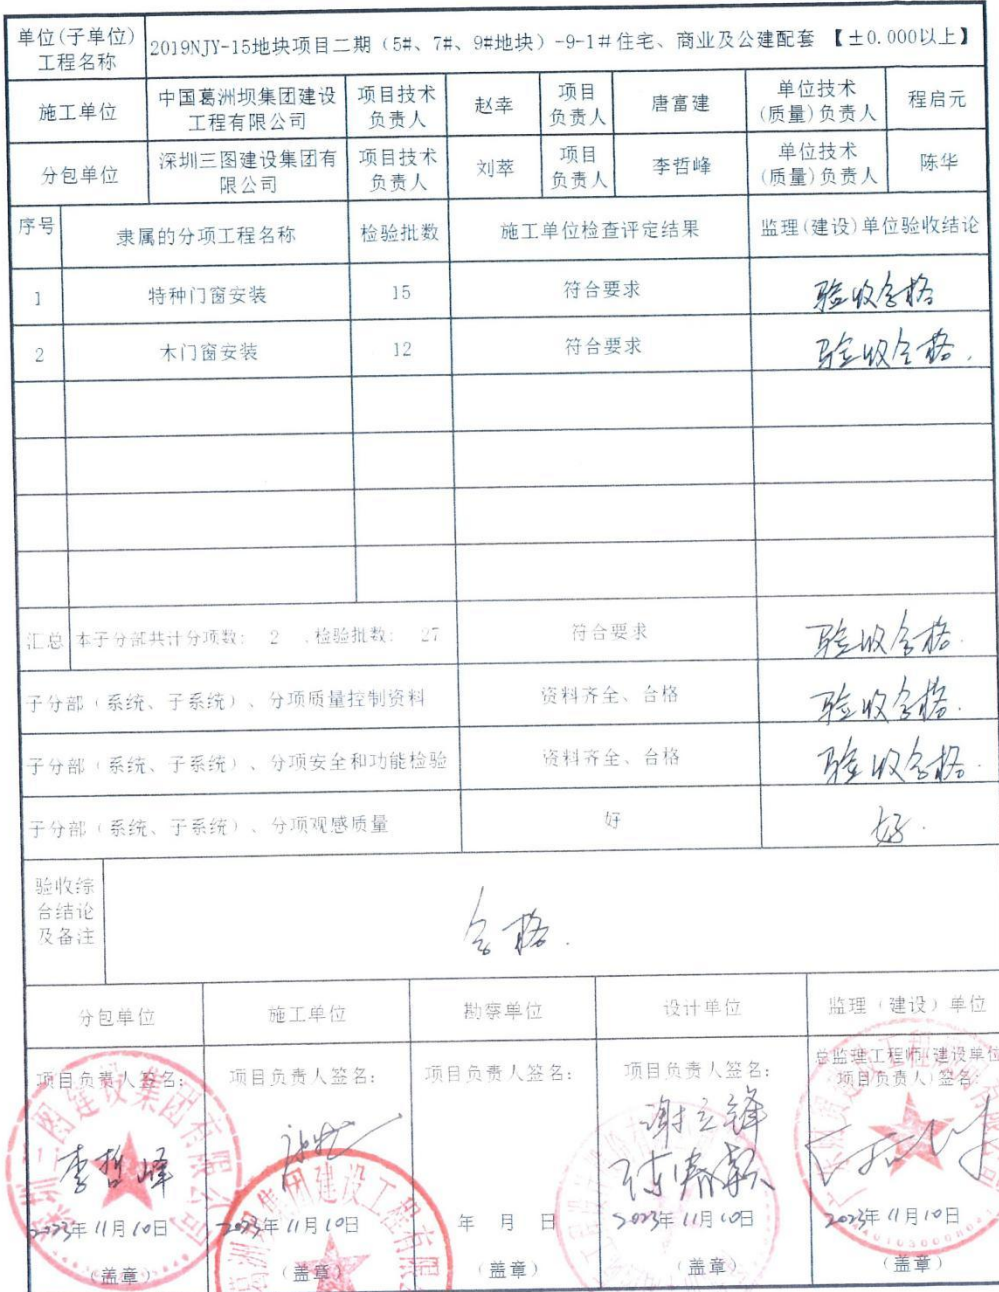 单位(子单位)
工程名称
2019NJY-15地块项目二期（5#、7#、9#地块）-9-1#住宅、商业及公建配套 【±0.000以上】
施工单位
中国葛洲坝集团建设
工程有限公司
项目技术
负责人
赵幸
项目
负责人
唐富建
单位技术
(质量)负责人
程启元
分包单位
深圳三图建设集团有
限公司
项目技术
负责人
刘萃
项目
负责人
李哲峰
单位技术
(质量)负责人
陈华
序号
隶属的分项工程名称
检验批数
施工单位检查评定结果
监理(建设)单位验收结论
1
特种门窗安装
15
符合要求
验收合格
2
木门窗安装
12
符合要求
验收合格.
汇总
本子分部共计分项数: 2 .检验批数: 27
符合要求
验收合格.
子分部（系统、子系统）、分项质量控制资料
资料齐全、合格
验收合格.
子分部（系统、子系统）、分项安全和功能检验
资料齐全、合格
验收合格.
子分部（系统、子系统）、分项观感质量
好
好.
验收综
合结论
及备注
合格.
分包单位
施工单位
勘察单位
设计单位
监理（建设）单位
项目负责人签名:
李哲峰
2023年11月10日
(盖章)
项目负责人签名:
2023年11月10日
(盖章)
项目负责人签名:
年 月 日
(盖章)
项目负责人签名:
谢立锋
2023年11月10日
(盖章)
总监理工程师(建设单位
项目负责人)签名:
2023年11月10日
(盖章)